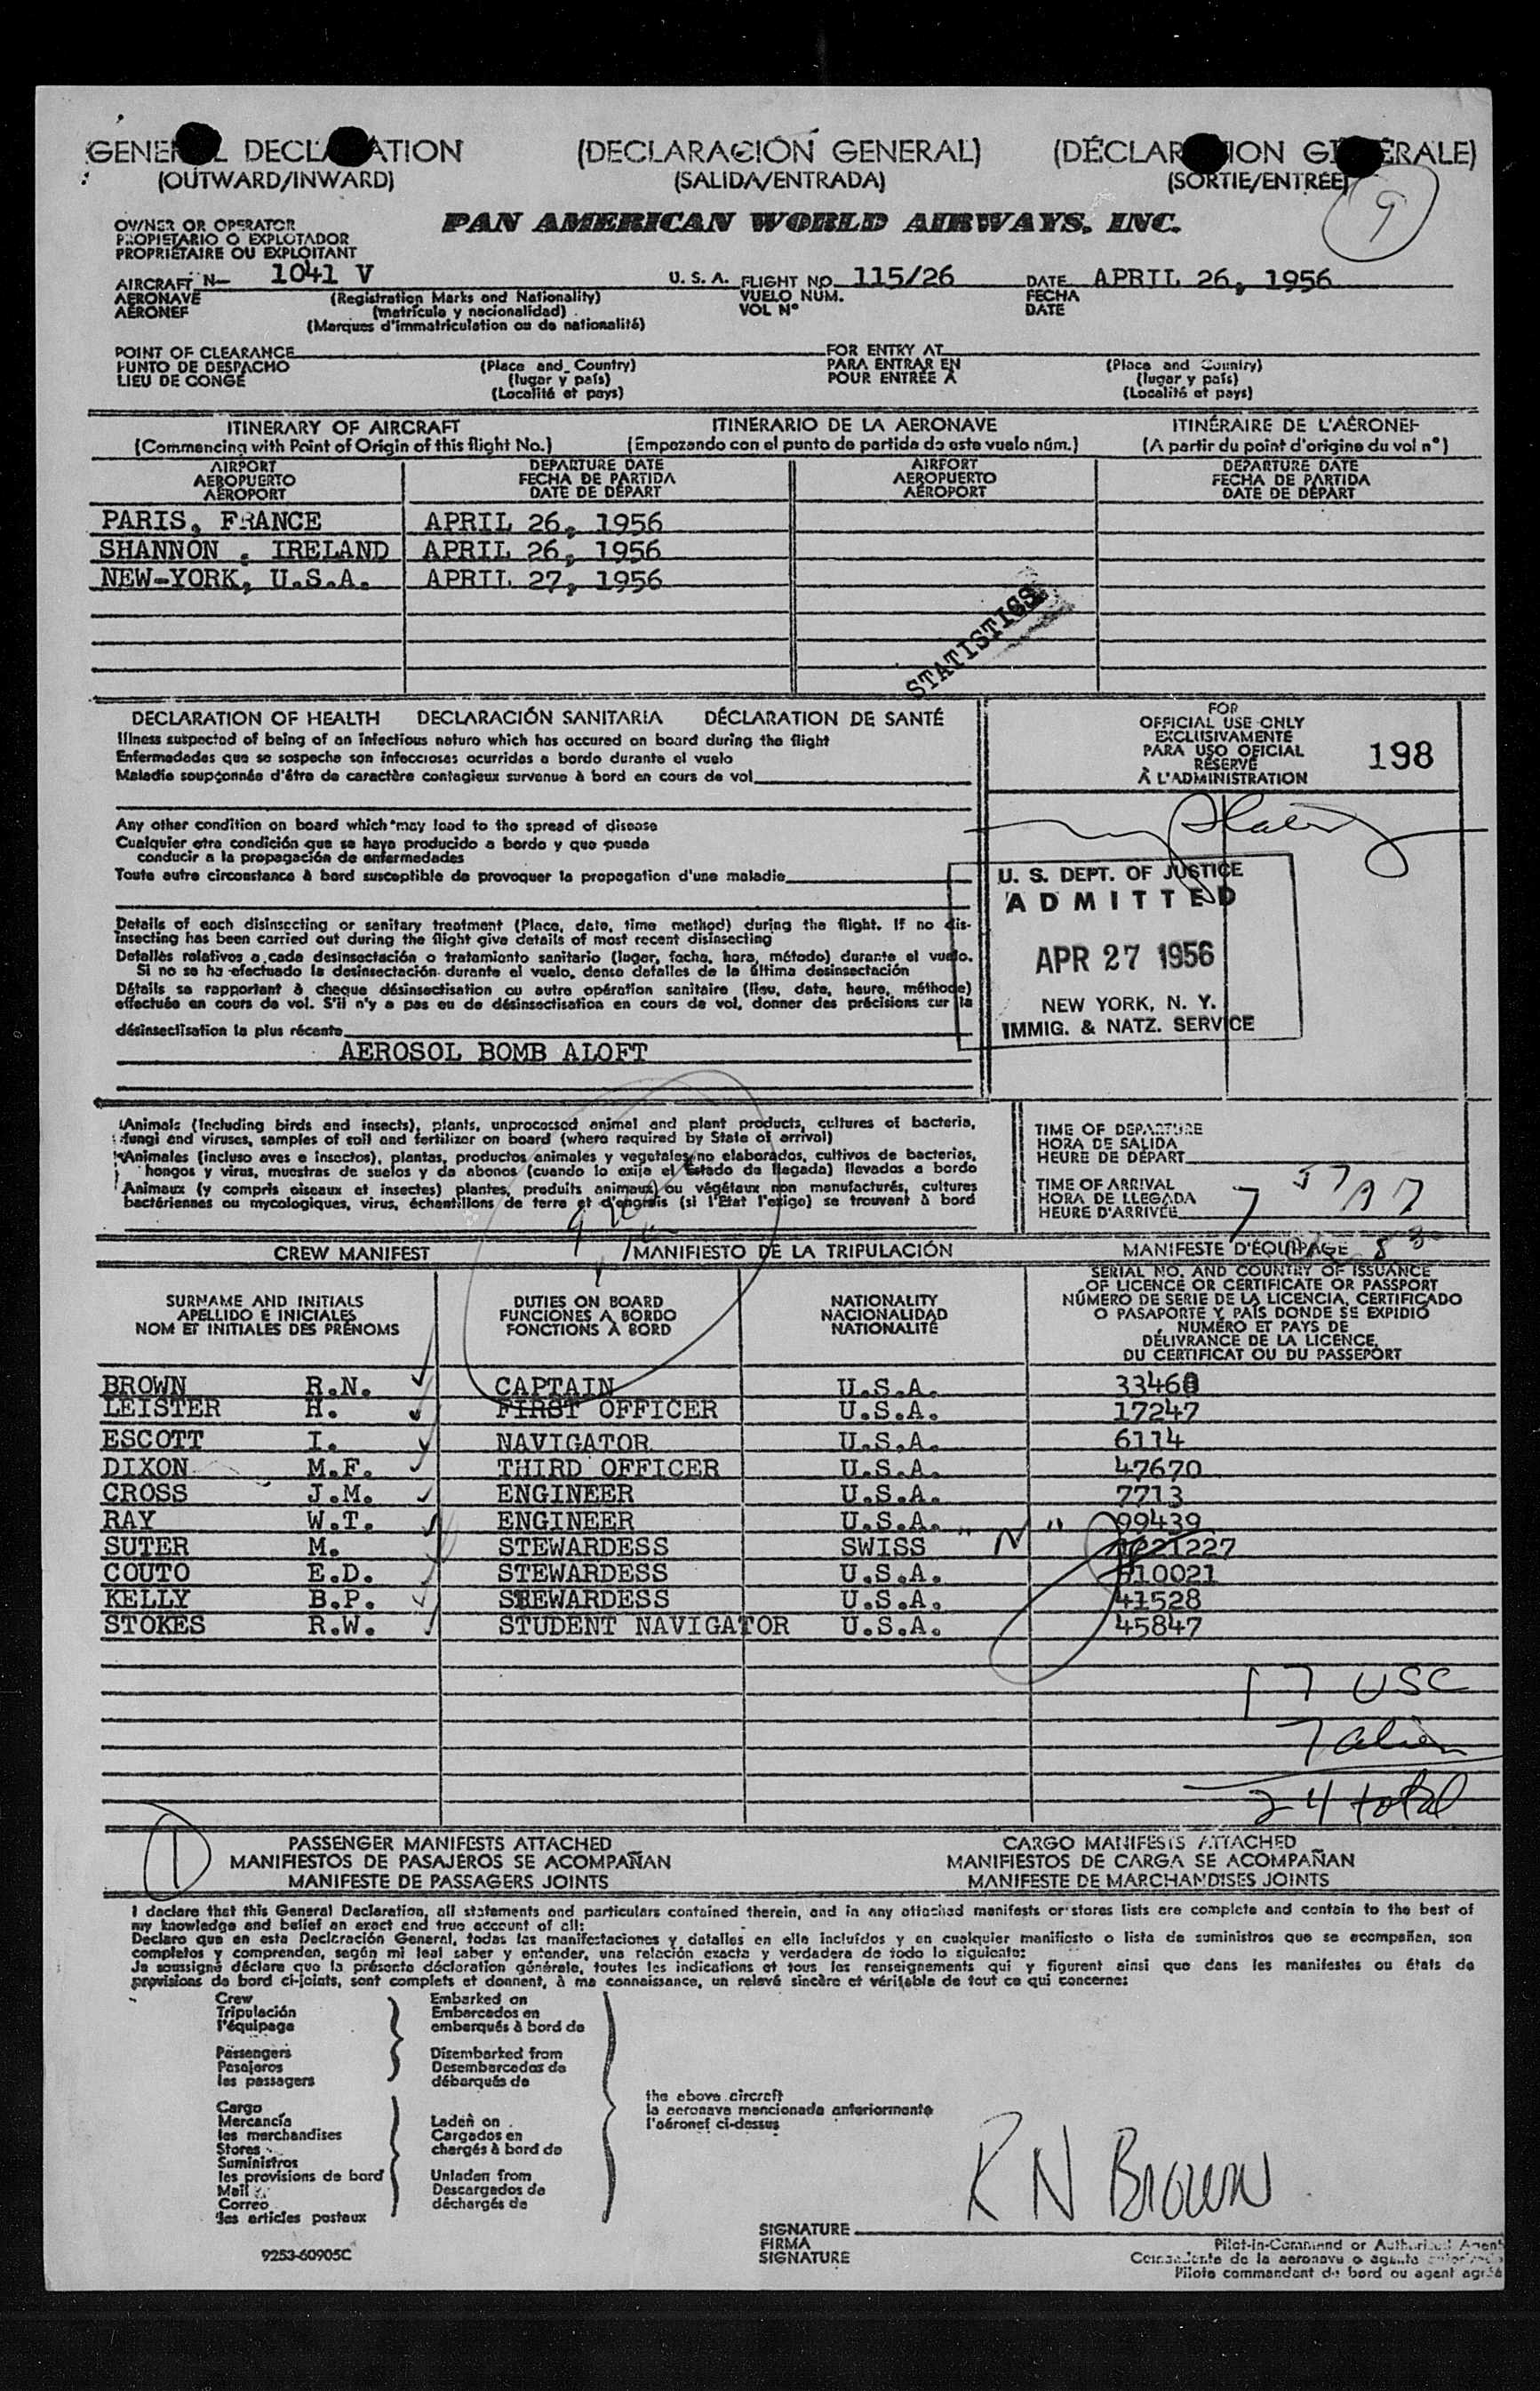 GENERAL DECLARATION (DECLARACIÓN GENERAL) (DÉCLARATION GÉNÉRALE)
(OUTWARD/INWARD) (SALIDA/ENTRADA) (SORTIE/ENTRÉE)
9
OWNER OR OPERATOR
PROPIETARIO O EXPLOTADOR
PROPRIÉTAIRE OU EXPLOITANT
PAN AMERICAN WORLD AIRWAYS, INC.
AIRCRAFT N- 1041 V U. S. A. FLIGHT NO. 115/26 DATE APRIL 26, 1956
AERONAVE (Registration Marks and Nationality) VUELO NÚM. FECHA
AÉRONEF (matrícula y nacionalidad) VOL Nº DATE
(Marques d'immatriculation ou de nationalité)
POINT OF CLEARANCE FOR ENTRY AT
PUNTO DE DESPACHO (Place and Country) PARA ENTRAR EN (Place and Country)
LIEU DE CONGÉ (lugar y país) POUR ENTRÉE À (lugar y país)
(Localité et pays) (Localité et pays)
ITINERARY OF AIRCRAFT ITINERARIO DE LA AERONAVE ITINÉRAIRE DE L'AÉRONEF
(Commencing with Point of Origin of this flight No.) (Empezando con el punto de partida de este vuelo núm.) (A partir du point d'origine du vol nº)
AIRPORT DEPARTURE DATE AIRPORT DEPARTURE DATE
AEROPUERTO FECHA DE PARTIDA AEROPUERTO FECHA DE PARTIDA
AÉROPORT DATE DE DÉPART AÉROPORT DATE DE DÉPART
PARIS, FRANCE APRIL 26, 1956
SHANNON , IRELAND APRIL 26, 1956
NEW-YORK, U.S.A. APRIL 27, 1956
STATISTICS
DECLARATION OF HEALTH DECLARACIÓN SANITARIA DÉCLARATION DE SANTÉ
Illness suspected of being of an infectious nature which has occured on board during the flight
Enfermedades que se sospecha son infecciosas ocurridas a bordo durante el vuelo
Maladie soupçonnée d'être de caractère contagieux survenue à bord en cours de vol
FOR
OFFICIAL USE ONLY
EXCLUSIVAMENTE
PARA USO OFICIAL
RÉSERVÉ
À L'ADMINISTRATION
198
Any other condition on board which may lead to the spread of disease
Cualquier otra condición que se haya producido a bordo y que pueda
conducir a la propagación de enfermedades
Toute autre circonstance à bord susceptible de provoquer la propagation d'une maladie
U. S. DEPT. OF JUSTICE
ADMITTED
APR 27 1956
NEW YORK, N. Y.
IMMIG. & NATZ. SERVICE
Details of each disinsecting or sanitary treatment (Place, date, time method) during the flight. If no dis-
insecting has been carried out during the flight give details of most recent disinsecting
Detalles relativos a cada desinsectación o tratamiento sanitario (lugar, fecha, hora, método) durante el vuelo.
Si no se ha efectuado la desinsectación durante el vuelo, dense detalles de la última desinsectación
Détails se rapportant à chaque désinsectisation ou autre opération sanitaire (lieu, date, heure, méthode)
effectuée en cours de vol. S'il n'y a pas eu de désinsectisation en cours de vol, donner des précisions sur la
désinsectisation la plus récente
AEROSOL BOMB ALOFT
Animals (Including birds and insects), plants, unprocessed animal and plant products, cultures of bacteria,
fungi and viruses, samples of soil and fertilizer on board (where required by State of arrival)
Animales (incluso aves e insectos), plantas, productos animales y vegetales no elaborados, cultivos de bacterias,
hongos y virus, muestras de suelos y de abonos (cuando lo exija el Estado de llegada) llevados a bordo
Animaux (y compris oiseaux et insectes) plantes, produits animaux ou végétaux non manufacturés, cultures
bactériennes ou mycologiques, virus, échantillons de terre et d'engrais (si l'État l'exige) se trouvant à bord
TIME OF DEPARTURE
HORA DE SALIDA
HEURE DE DÉPART
TIME OF ARRIVAL
HORA DE LLEGADA
HEURE D'ARRIVÉE
CREW MANIFEST MANIFIESTO DE LA TRIPULACIÓN MANIFESTE D'ÉQUIPAGE
SURNAME AND INITIALS
APELLIDO E INICIALES
NOM ET INITIALES DES PRÉNOMS
DUTIES ON BOARD
FUNCIONES A BORDO
FONCTIONS À BORD
NATIONALITY
NACIONALIDAD
NATIONALITÉ
SERIAL NO. AND COUNTRY OF ISSUANCE
OF LICENCE OR CERTIFICATE OR PASSPORT
NÚMERO DE SERIE DE LA LICENCIA, CERTIFICADO
O PASAPORTE Y PAÍS DONDE SE EXPIDIÓ
NUMÉRO ET PAYS DE
DÉLIVRANCE DE LA LICENCE,
DU CERTIFICAT OU DU PASSEPORT
BROWN R.N. CAPTAIN U.S.A. 33460
LEISTER H. FIRST OFFICER U.S.A. 17247
ESCOTT I. NAVIGATOR U.S.A. 6114
DIXON M.F. THIRD OFFICER U.S.A. 47670
CROSS J.M. ENGINEER U.S.A. 7713
RAY W.T. ENGINEER U.S.A. 99439
SUTER M. STEWARDESS SWISS "N"
COUTO E.D. STEWARDESS U.S.A. 510021
KELLY B.P. STEWARDESS U.S.A. 41528
STOKES R.W. STUDENT NAVIGATOR U.S.A. 45847
17 USC
7 alien
24 total
1
PASSENGER MANIFESTS ATTACHED CARGO MANIFESTS ATTACHED
MANIFIESTOS DE PASAJEROS SE ACOMPAÑAN MANIFIESTOS DE CARGA SE ACOMPAÑAN
MANIFESTE DE PASSAGERS JOINTS MANIFESTE DE MARCHANDISES JOINTS
I declare that this General Declaration, all statements and particulars contained therein, and in any attached manifests or stores lists are complete and contain to the best of
my knowledge and belief an exact and true account of all:
Declaro que en esta Declaración General, todas las manifestaciones y detalles en ella incluídos y en cualquier manifiesto o lista de suministros que se acompañan, son
completos y comprenden, según mi leal saber y entender, una relación exacta y verdadera de todo lo siguiente:
Je soussigné déclare que la présente déclaration générale, toutes les indications et tous les renseignements qui y figurent ainsi que dans les manifestes ou états de
provisions de bord ci-joints, sont complets et donnent, à ma connaissance, un relevé sincère et véritable de tout ce qui concerne:
Crew Embarked on
Tripulación Embarcados en
l'équipage embarqués à bord de
Passengers Disembarked from
Pasajeros Desembarcados de
les passagers débarqués de
the above aircraft
la aeronave mencionada anteriormente
l'aéronef ci-dessus
Cargo
Mercancía Laden on
les marchandises Cargados en
Stores chargés à bord de
Suministros
les provisions de bord Unladen from
Mail Descargados de
Correo déchargés de
les articles postaux
R N BROWN
SIGNATURE
FIRMA
SIGNATURE
Pilot-in-Command or Authorized Agent
Comandante de la aeronave o agente autorizado
Pilote commandant de bord ou agent agréé
9253-60905C